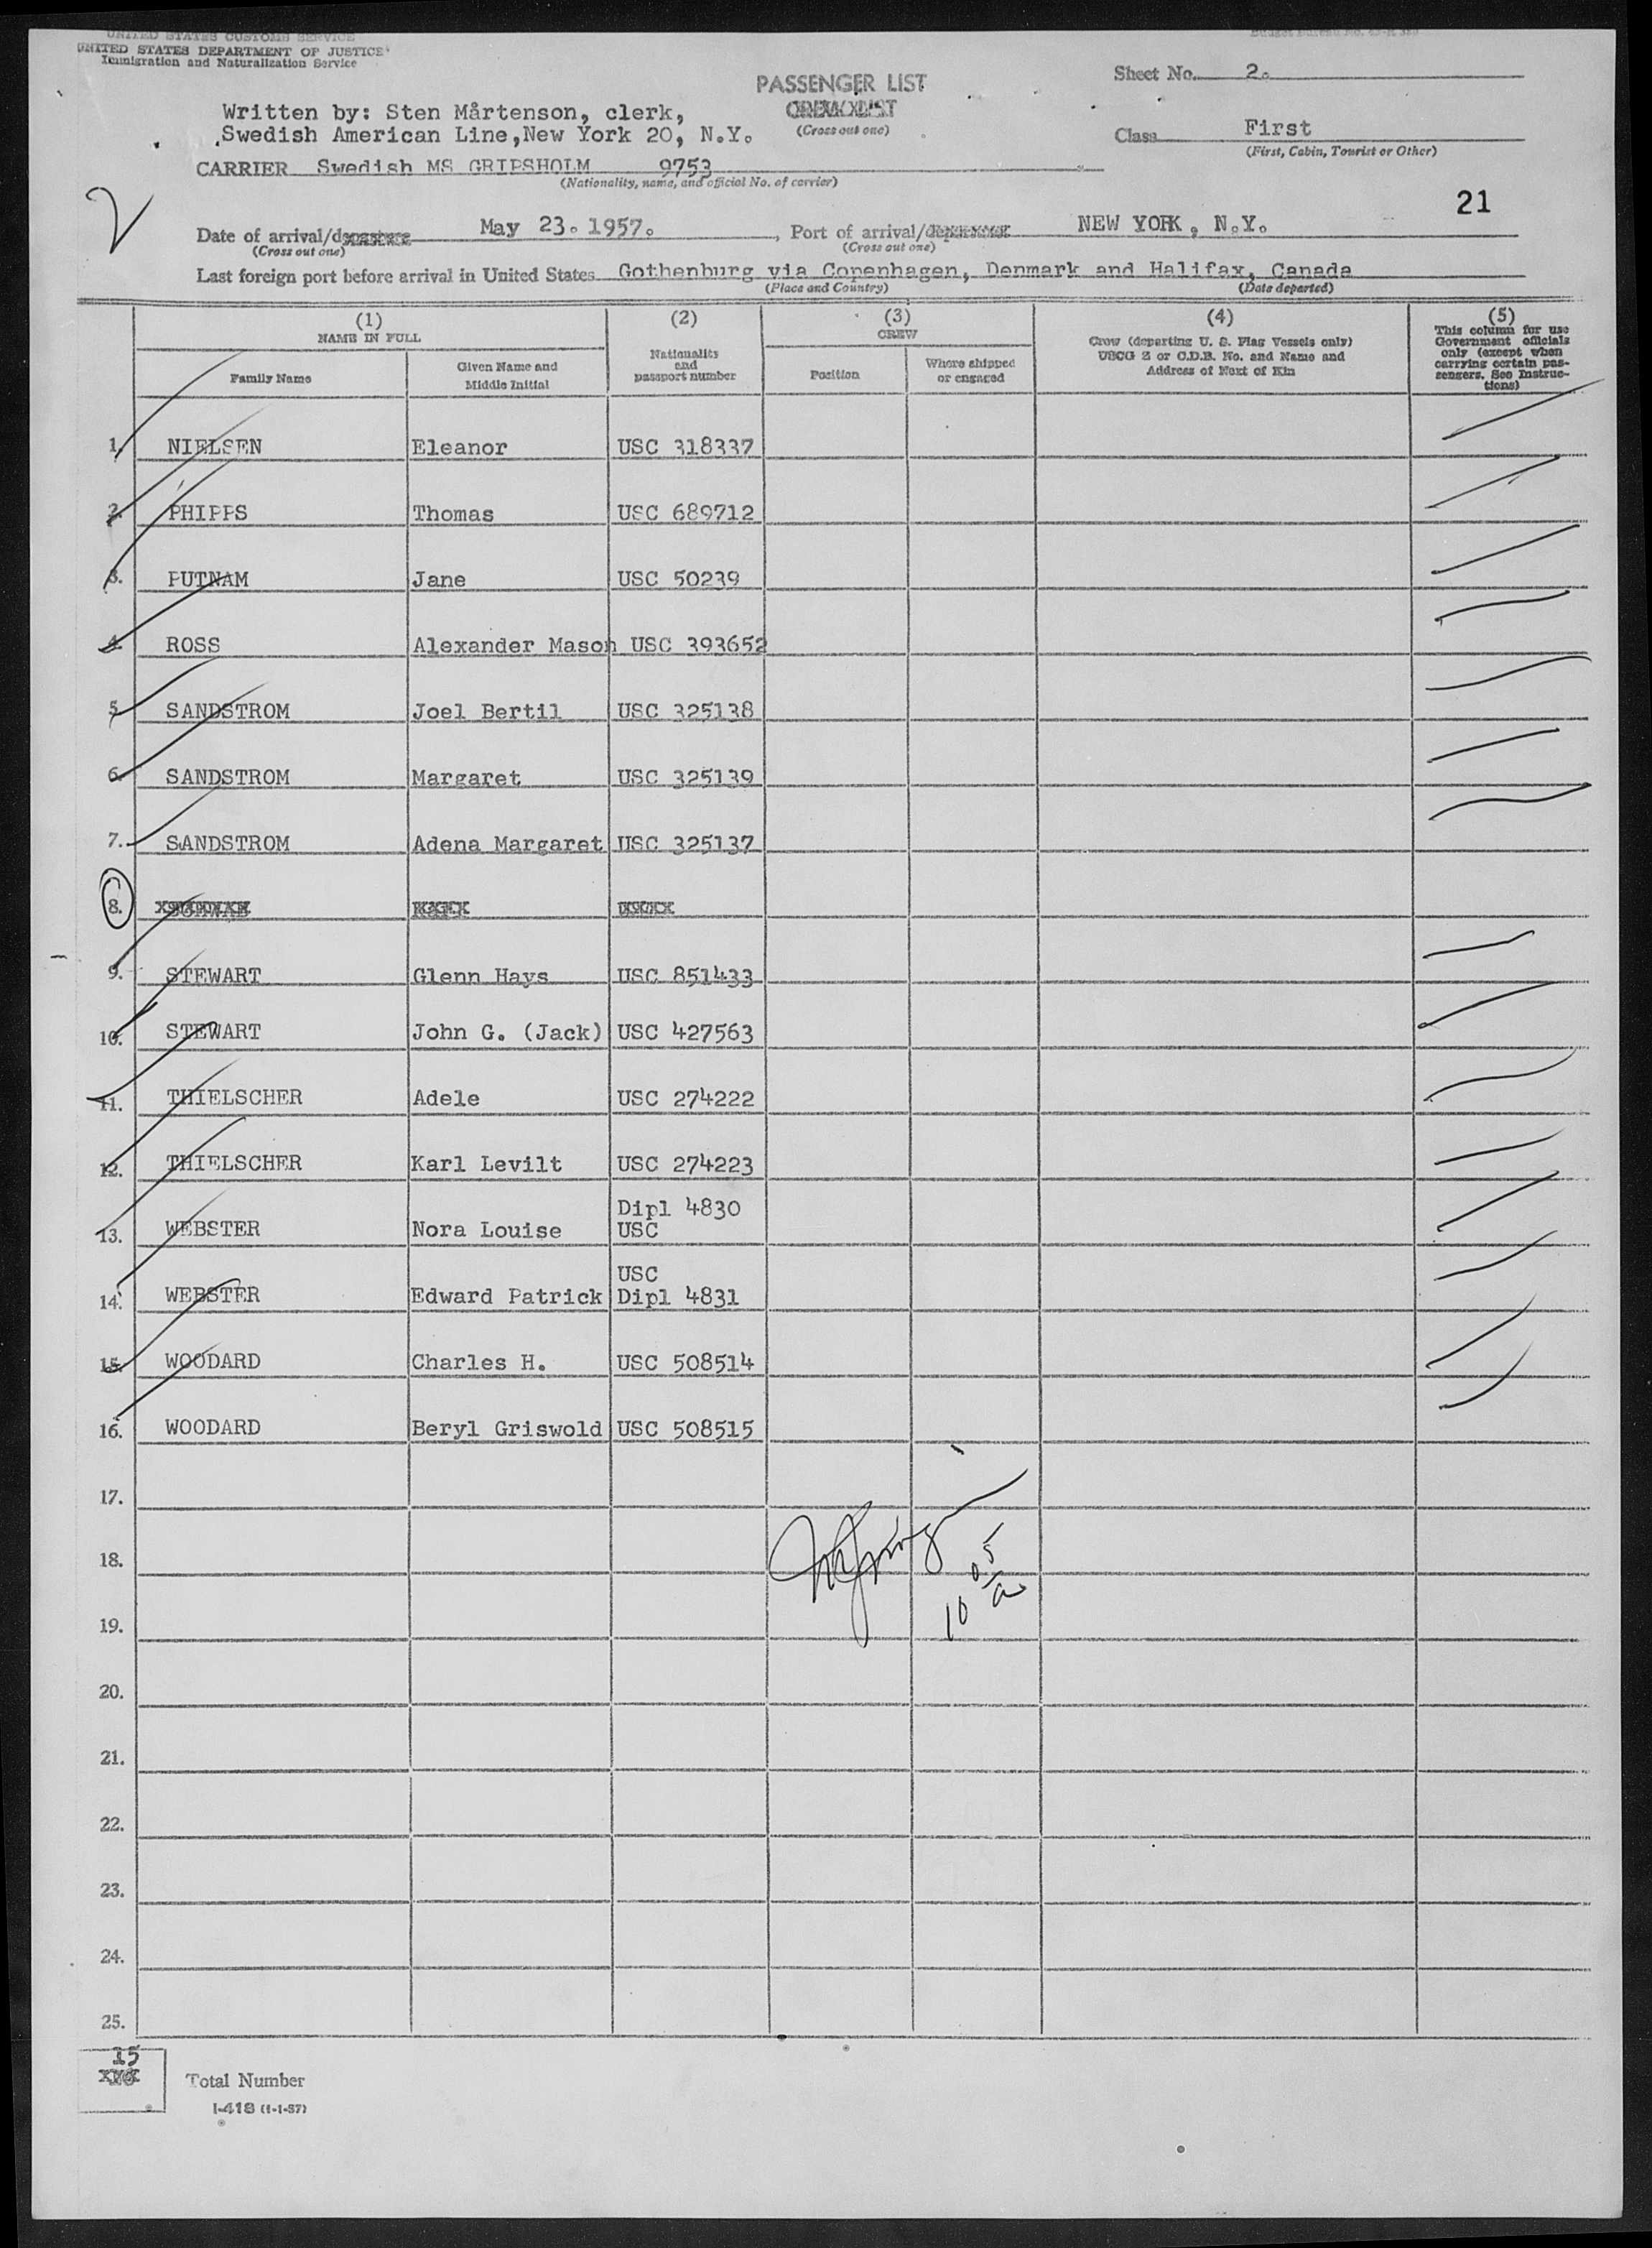 UNITED STATES CUSTOMS SERVICE
UNITED STATES DEPARTMENT OF JUSTICE
Immigration and Naturalization Service
PASSENGER LIST
Sheet No. 2.
Written by: Sten Mårtenson, clerk,
(Cross out one)
Swedish American Line,New York 20, N.Y.
Class First
(First, Cabin, Tourist or Other)
CARRIER Swedish MS GRIPSHOLM 9753
(Nationality, name, and official No. of carrier)
2
21
Date of arrival/departure May 23. 1957. , Port of arrival/departure NEW YORK , N.Y.
(Cross out one) (Cross out one)
Last foreign port before arrival in United States Gothenburg via Copenhagen, Denmark and Halifax, Canada
(Place and Country) (Date departed)
(1) (2) (3) (4) (5)
NAME IN FULL
Family Name
Given Name and Middle Initial
Nationality and passport number
CREW
Position
Where shipped or engaged
Crew (departing U. S. Flag Vessels only)
USCG Z or C.D.B. No. and Name and
Address of Next of Kin
This column for use
Government officials
only (except when
carrying certain pas-
sengers. See Instruc-
tions)
1. NIELSEN Eleanor USC 318337
2. PHIPPS Thomas USC 689712
3. PUTNAM Jane USC 50239
4. ROSS Alexander Mason USC 393652
5. SANDSTROM Joel Bertil USC 325138
6. SANDSTROM Margaret USC 325139
7. SANDSTROM Adena Margaret USC 325137
8.
9. STEWART Glenn Hays USC 851433
10. STEWART John G. (Jack) USC 427563
11. THIELSCHER Adele USC 274222
12. THIELSCHER Karl Levilt USC 274223
Dipl 4830
13. WEBSTER Nora Louise USC
USC
14. WEBSTER Edward Patrick Dipl 4831
15. WOODARD Charles H. USC 508514
16. WOODARD Beryl Griswold USC 508515
17.
18.
19.
10 05/a
20.
21.
22.
23.
24.
25.
15
Total Number
I-418 (1-1-57)